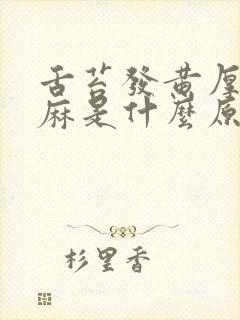 舌苔發黄厚
麻是什麼原
杉里香